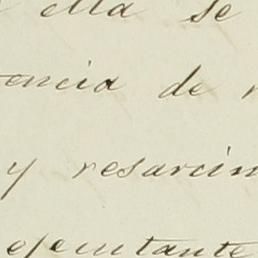 ella se
tencia de
y resarcim
ejecutante